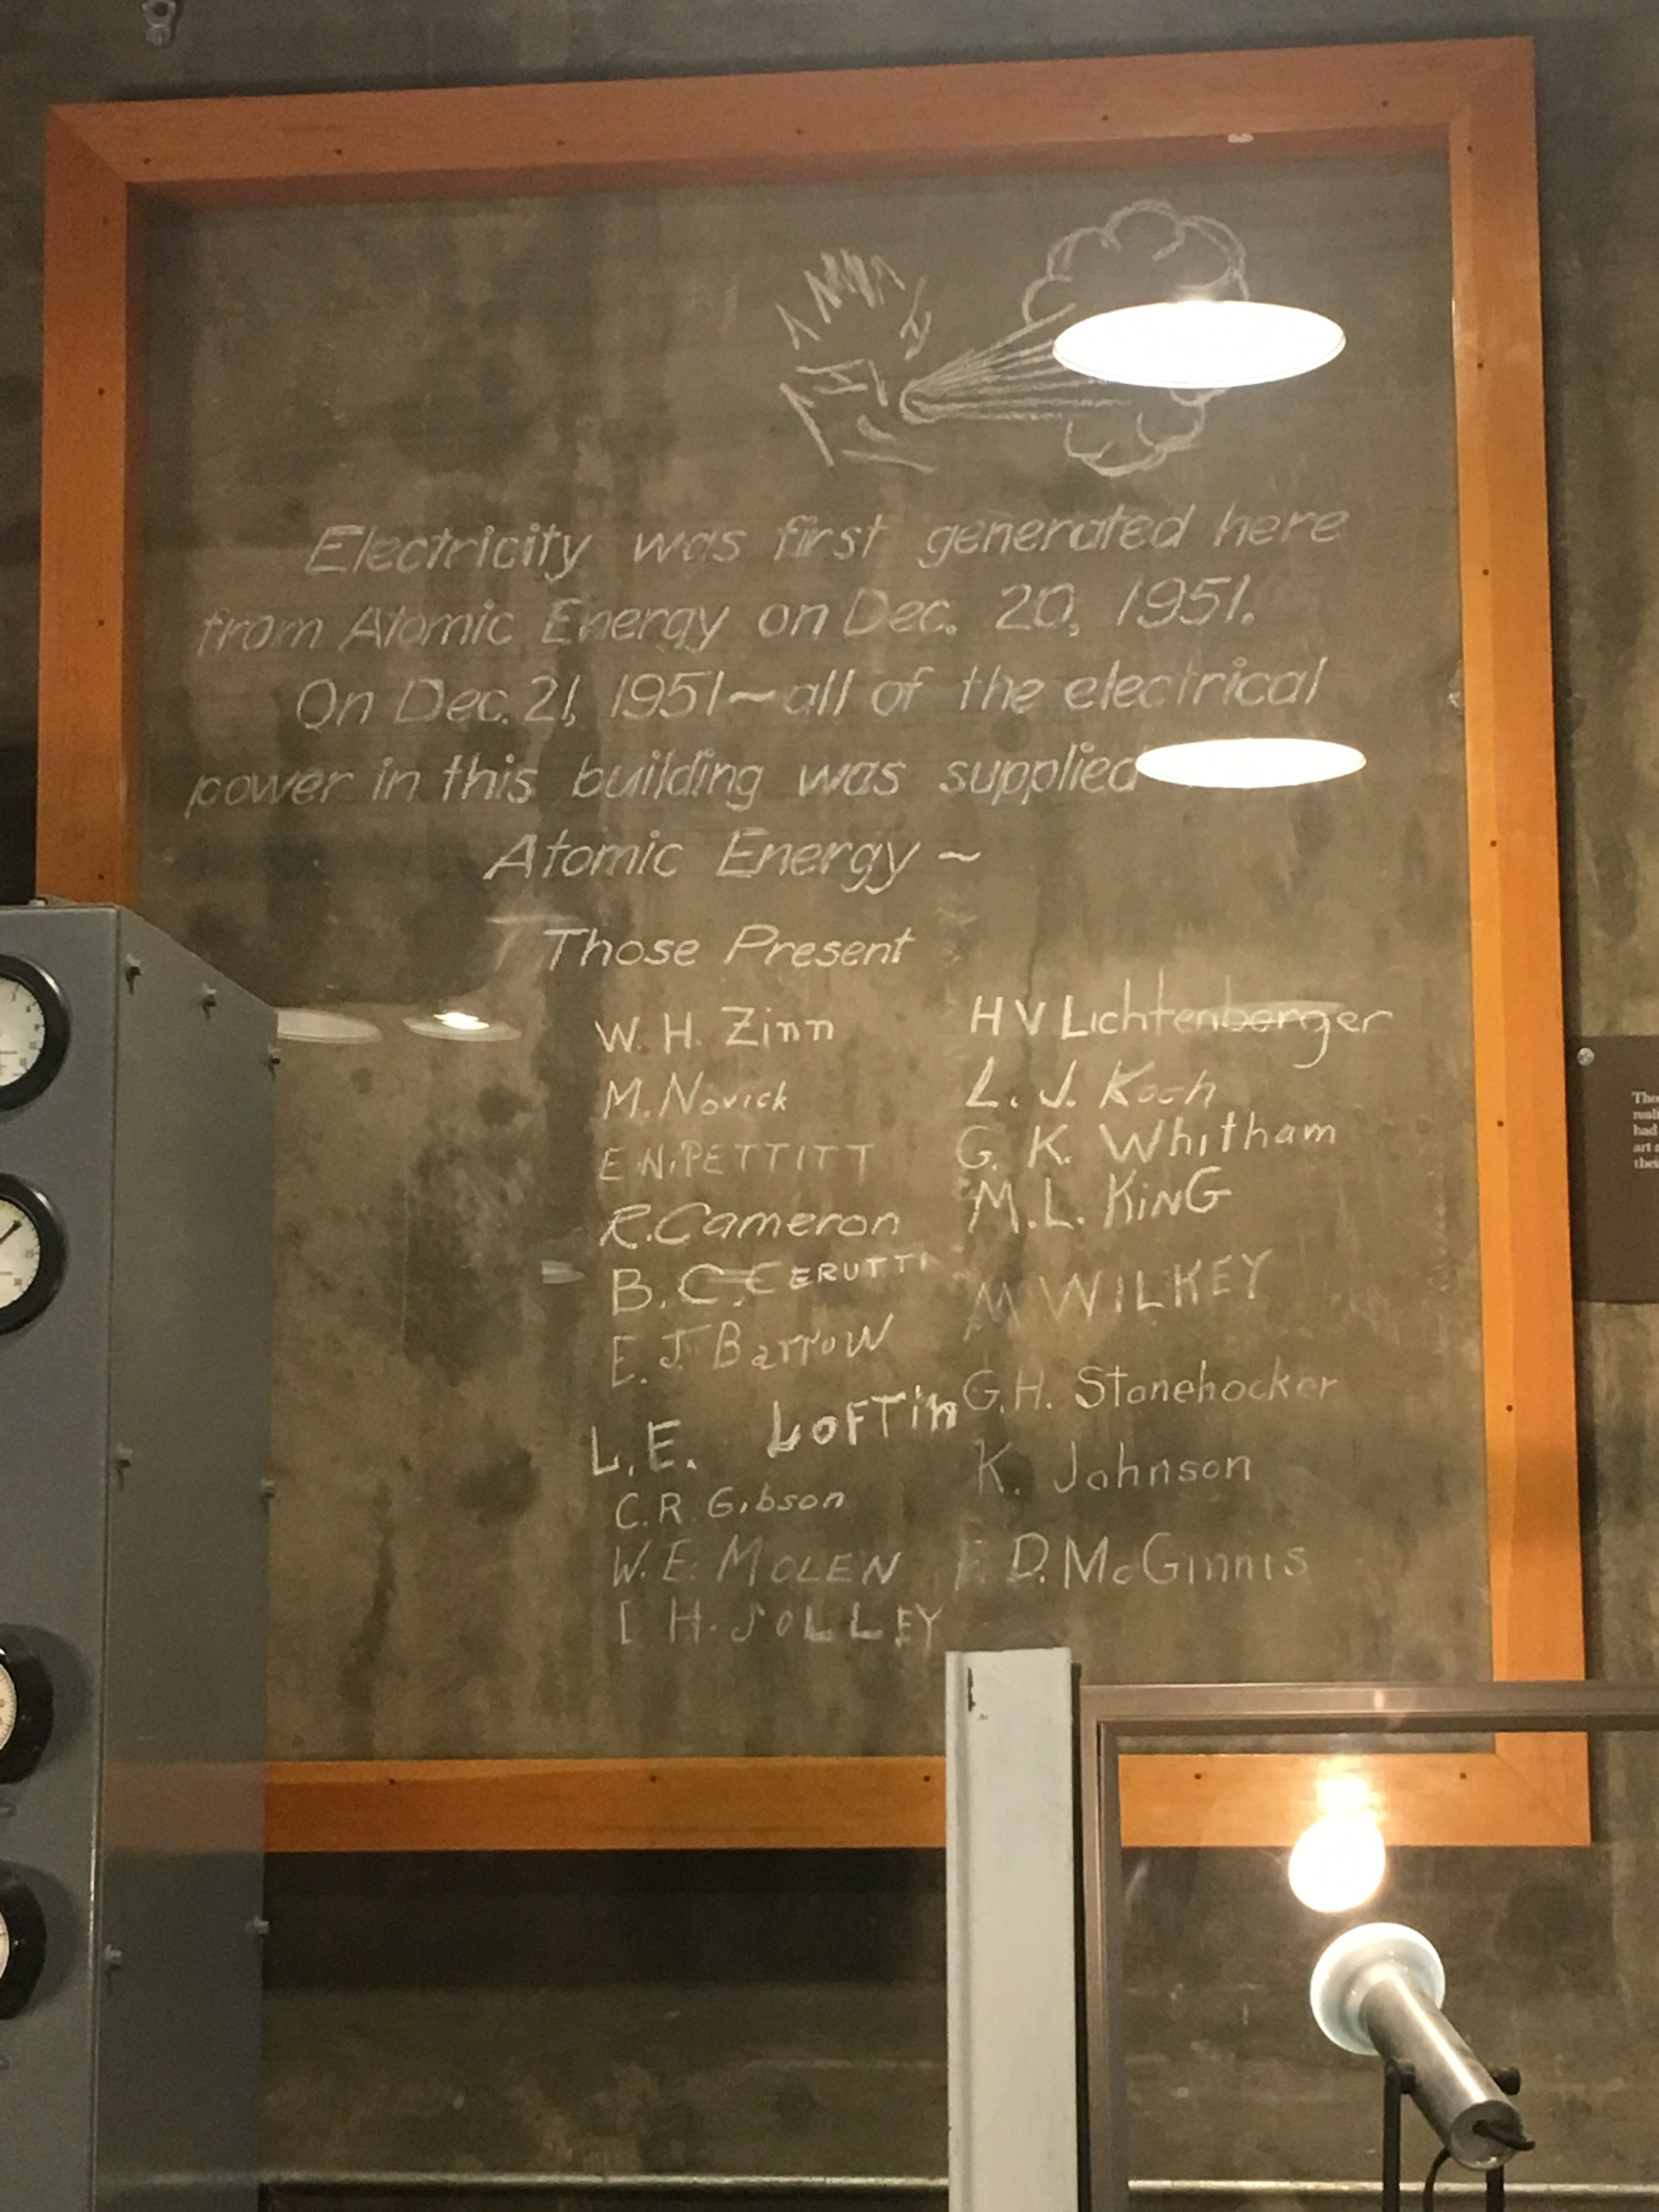 Electricity was first generated here
from Atomic Energy on Dec. 20, 1951.
On Dec. 21, 1951~all of the electrical
power in this building was supplied
Atomic Energy ~
Those Present
W. H. Zinn
M. Novick
E.N. PETTITT
R. Cameron
B. C. CERUTTI
E. J. Barrow
L. E. LOFTin
C. R. Gibson
W. E. MOLEN
H. JOLLEY
H V Lichtenberger
L. J. Koch
G. K. Whitham
M. L. KiNG
M WILKEY
G. H. Stonehocker
K. Johnson
D. McGinnis